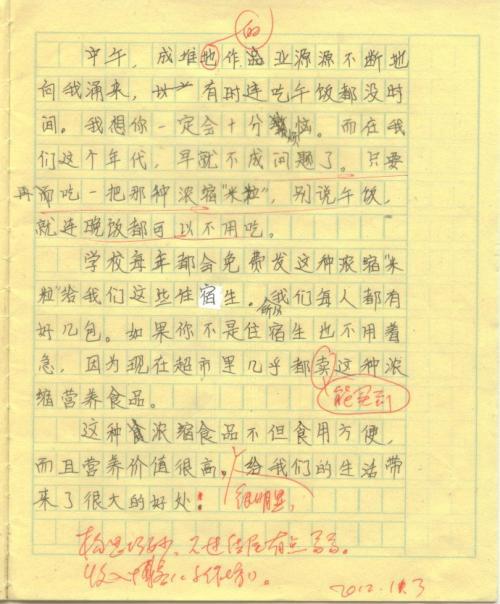 的
中午，成堆地作品业源源不断地
向我涌来，以 有时连吃午饭都没时
间。我想你一定会十分烦恼。而在我
们这个年代，早就不成问题了。只要
再而吃一把那种浓缩"米粒"，别说午饭，
就连晚饭都可以不用吃。
学校每年都会免费发这种浓缩"米
粒"给我们这些住宿生。我们每人都有
好几包。如果你不是住宿生也不用着
急，因为现在超市里几乎都卖这种浓
缩营养食品。
能买到
这种浓缩食品不但食用方便，
而且营养价值很高。给我们的生活带
来了很大的好处！
很明显，
构思巧妙，不过结尾有点
收入
2012.11.3